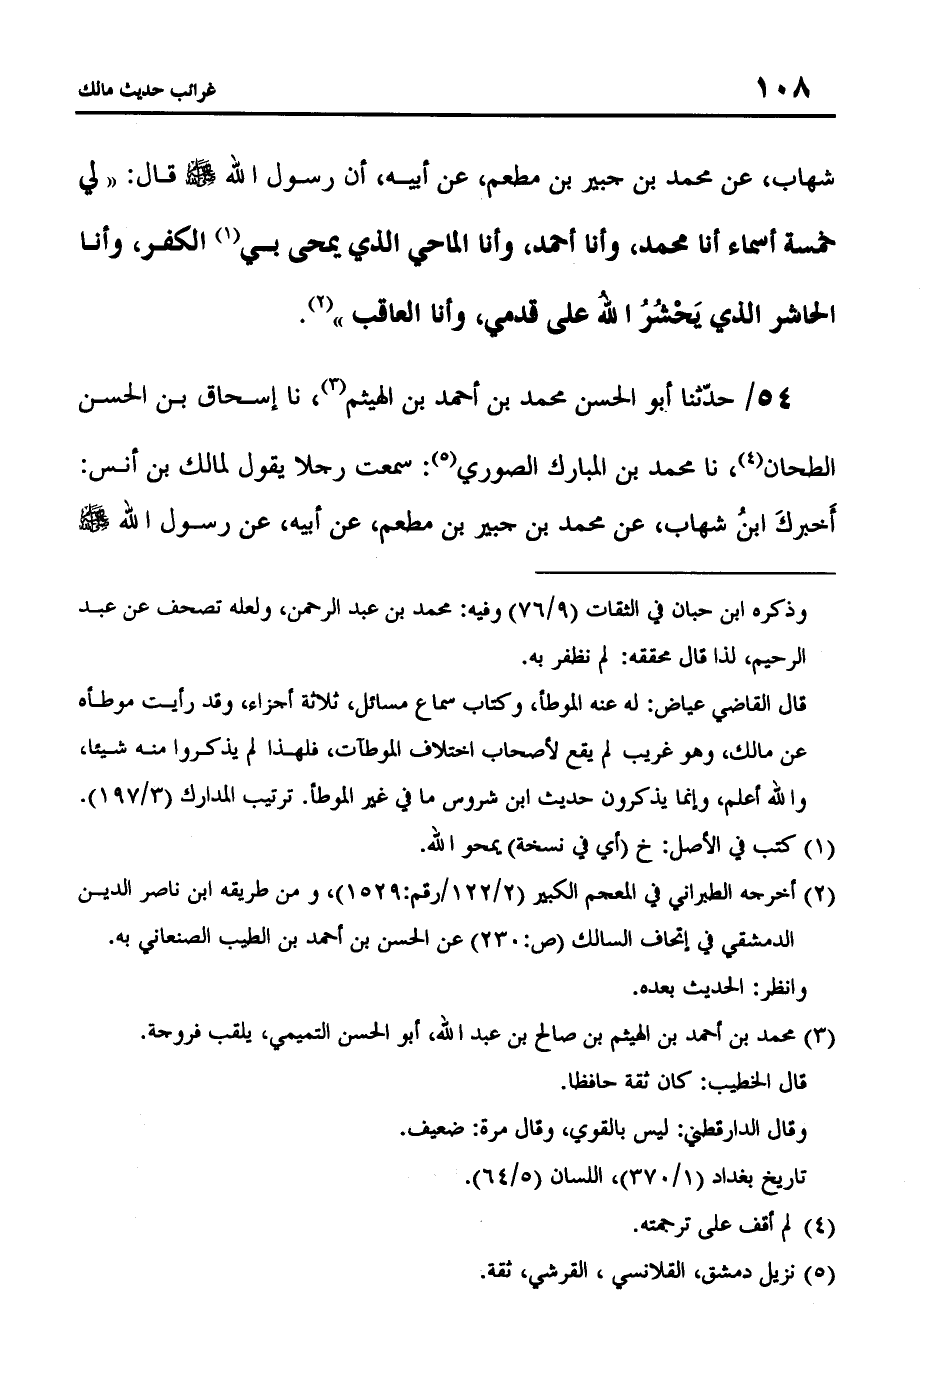 ١٠٨ غرائب حديث مالك
شهاب، عن محمد بن جبير بن مطعم، عن أبيـه، أن رسـول الله ﷺ قـال: «لي
خمسة أسماء أنا محمد، وأنا أحمد، وأنا الماحي الذي يمحى بـي(١) الكفـر، وأنـا
الحاشر الذي يَحْشُرُ اللهُ على قدمي، وأنا العاقب»(٢).
٥٤/ حدّثنا أبو الحسن محمد بن أحمد بن الهيثم(٣)، نا إسـحاق بـن الحسـن
الطحان(٤)، نا محمد بن المبارك الصوري(٥): سمعت رجلا يقول لمالك بن أنـس:
أَخبركَ ابنُ شهاب، عن محمد بن جبير بن مطعم، عن أبيه، عن رسـول الله ﷺ
وذكره ابن حبان في الثقات (٧٦/٩) وفيه: محمد بن عبد الرحمن، ولعله تصحف عن عبـد
الرحيم، لذا قال محققه: لم نظفر به.
قال القاضي عياض: له عنه الموطأ، وكتاب سماع مسائل، ثلاثة أجزاء، وقد رأيـت موطـأه
عن مالك، وهو غريب لم يقع لأصحاب اختلاف الموطآت، فلهـذا لم يذكـروا منـه شـيئا،
والله أعلم، وإنما يذكرون حديث ابن شروس ما في غير الموطأ. ترتيب المدارك (١٩٧/٣).
(١) كتب في الأصل: خ (أي في نسخة) يمحو الله.
(٢) أخرجه الطبراني في المعجم الكبير (١٢٢/٢/رقم:١٥٢٩)، و من طريقه ابن ناصر الديـن
الدمشقي في إتحاف السالك (ص:٢٣٠) عن الحسن بن أحمد بن الطيب الصنعاني به.
وانظر: الحديث بعده.
(٣) محمد بن أحمد بن الهيثم بن صالح بن عبد الله، أبو الحسن التميمي، يلقب فروجة.
قال الخطيب: كان ثقة حافظا.
وقال الدارقطني: ليس بالقوي، وقال مرة: ضعيف.
تاريخ بغداد (٣٧٠/١)، اللسان (٦٤/٥).
(٤) لم أقف على ترجمته.
(٥) نزيل دمشق، القلانسي ، القرشي، ثقة.